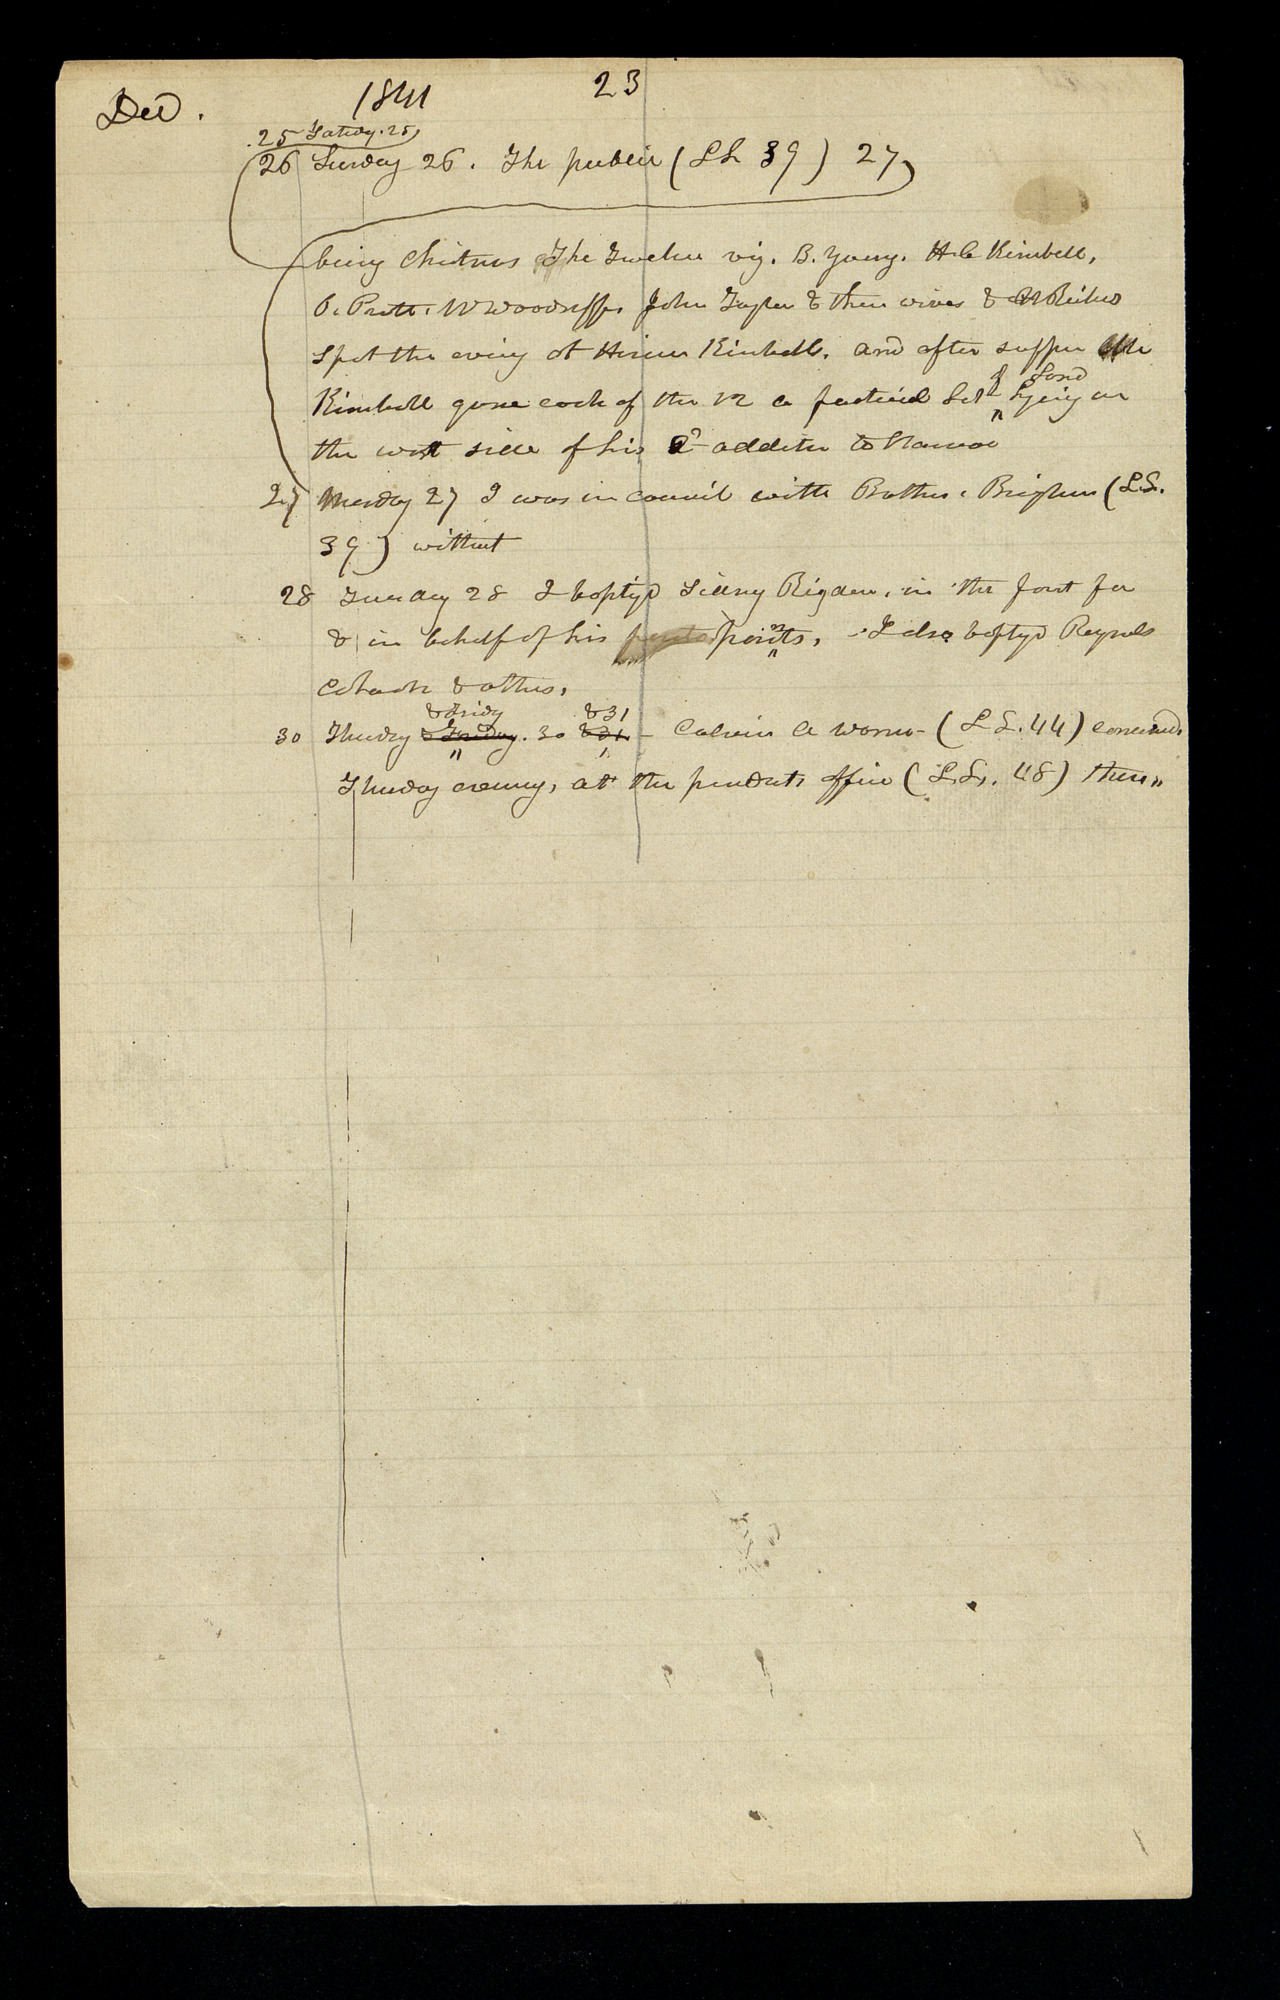 Dec. 1841 23
25 Saturday. 25
26 Sunday 26. The public (LS 39) 27
being Christmas The Twelve viz. B. Young. H C Kimbell,
O. Pratt. W Woodruff, John Taylor & their wives & W Richards
spent the evening at Hiram Kimball. and after supper Mr
Kimball gave each of the 12 a fractional Lot of Land lying on
the west side of his 2d addition to Nauvoo
27 Monday 27 I was in council with Brothers, Brigham (L.S.
39) without
28 Tuesday 28 I baptized Sidney Rigdon, in the font for
& in behalf of his parents, I also baptized Reynolds
Cahoon & others,
& Friday & 31
30 Thursday & Friday. 30 & 31 - Calvin A Warren - (L S. 44) concluded
Thursday evening, at the presidents office (L.S. 48) them"